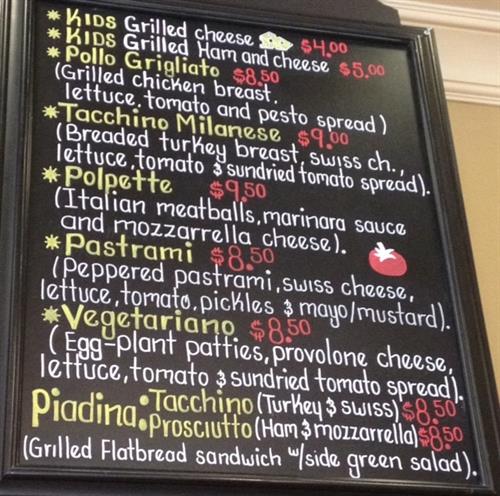 * KIDS Grilled cheese $4.00
* KIDS Grilled Ham and cheese $5.00
* Pollo Grigliato $8.50
(Grilled chicken breast,
lettuce, tomato and pesto spread)
* Tacchino Milanese $9.00
(Breaded turkey breast, swiss ch.,
lettuce, tomato & sundried tomato spread).
* Polpette $9.50
(Italian meatballs, marinara sauce
and mozzarrella cheese).
* Pastrami $8.50
(Peppered pastrami, swiss cheese,
lettuce, tomato, pickles & mayo/mustard).
* Vegetariano $8.50
(Egg-plant patties, provolone cheese,
lettuce, tomato & sundried tomato spread).
Piadina: Tacchino (Turkey & swiss) $8.50
Prosciutto (Ham & mozzarrella) $8.50
(Grilled Flatbread sandwich w/side green salad).